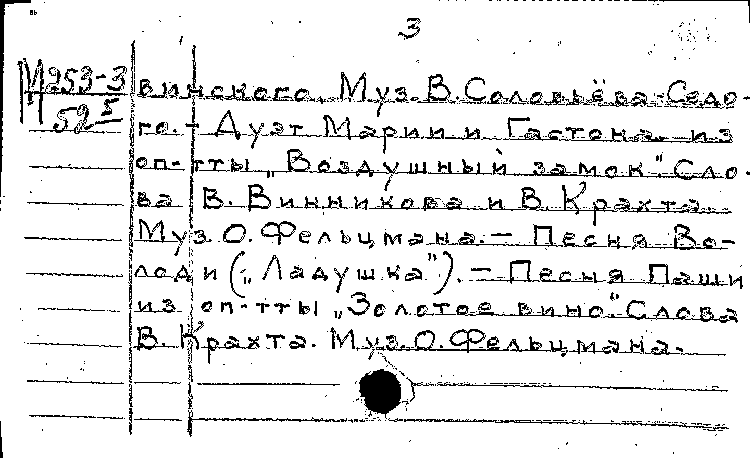 3
М253-3
52-5
винского. Муз. В. Соловьёва-Седо-
го. - Дуэт Марии и Гастона из
оп-тты „Воздушный замок". Сло-
ва В. Винникова и В. Крахта.
Муз. О. Фельцмана. - Песня Во-
лоди („Ладушка"). - Песня Паши
из оп-тты „Золотое вино". Слова
В. Крахта. Муз. О. Фельцмана.